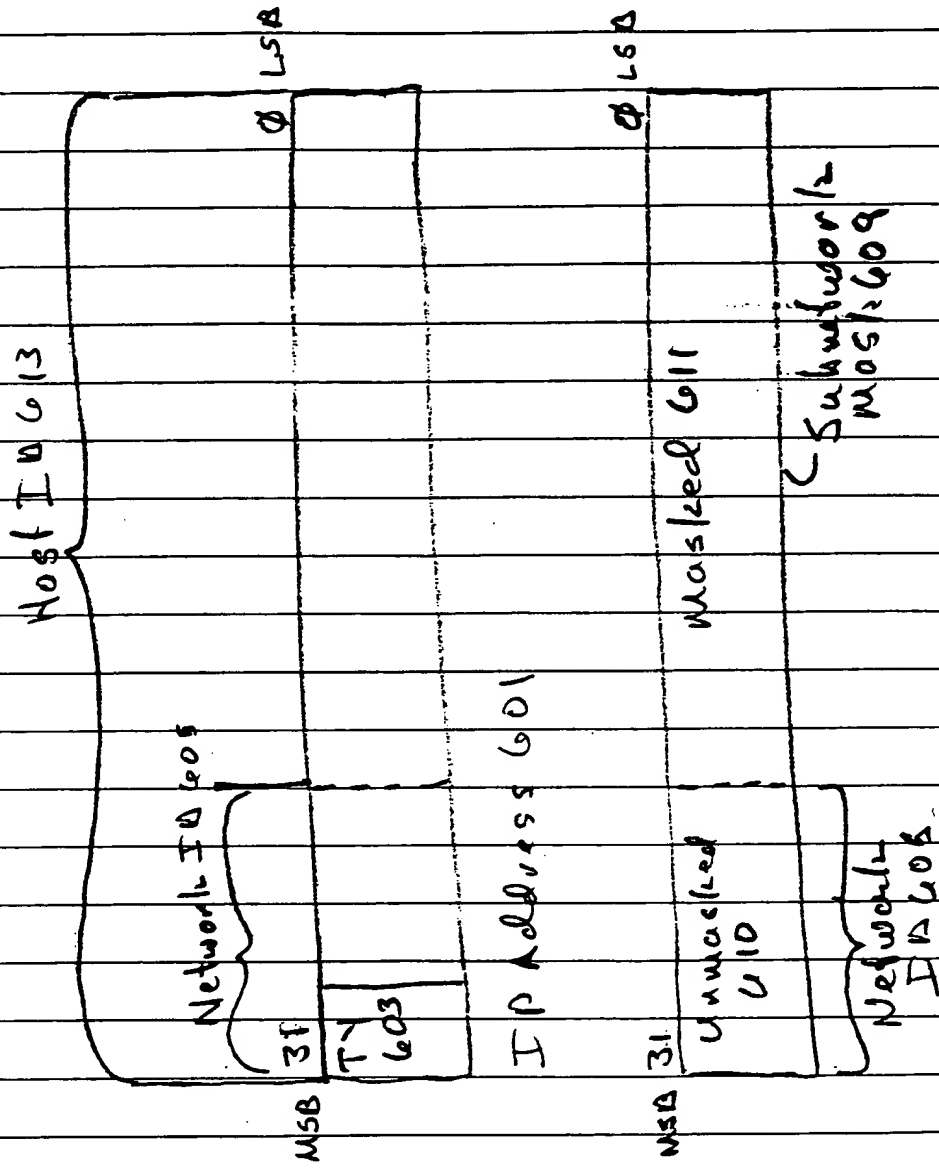 Host ID 613
Network ID 605
MSB 31 Ø LSB
TY
603
IP Address 601
MSB 31 Ø LSB
Unmasked
610
Masked 611
Network
ID 605
Subnetwork
Mask 609